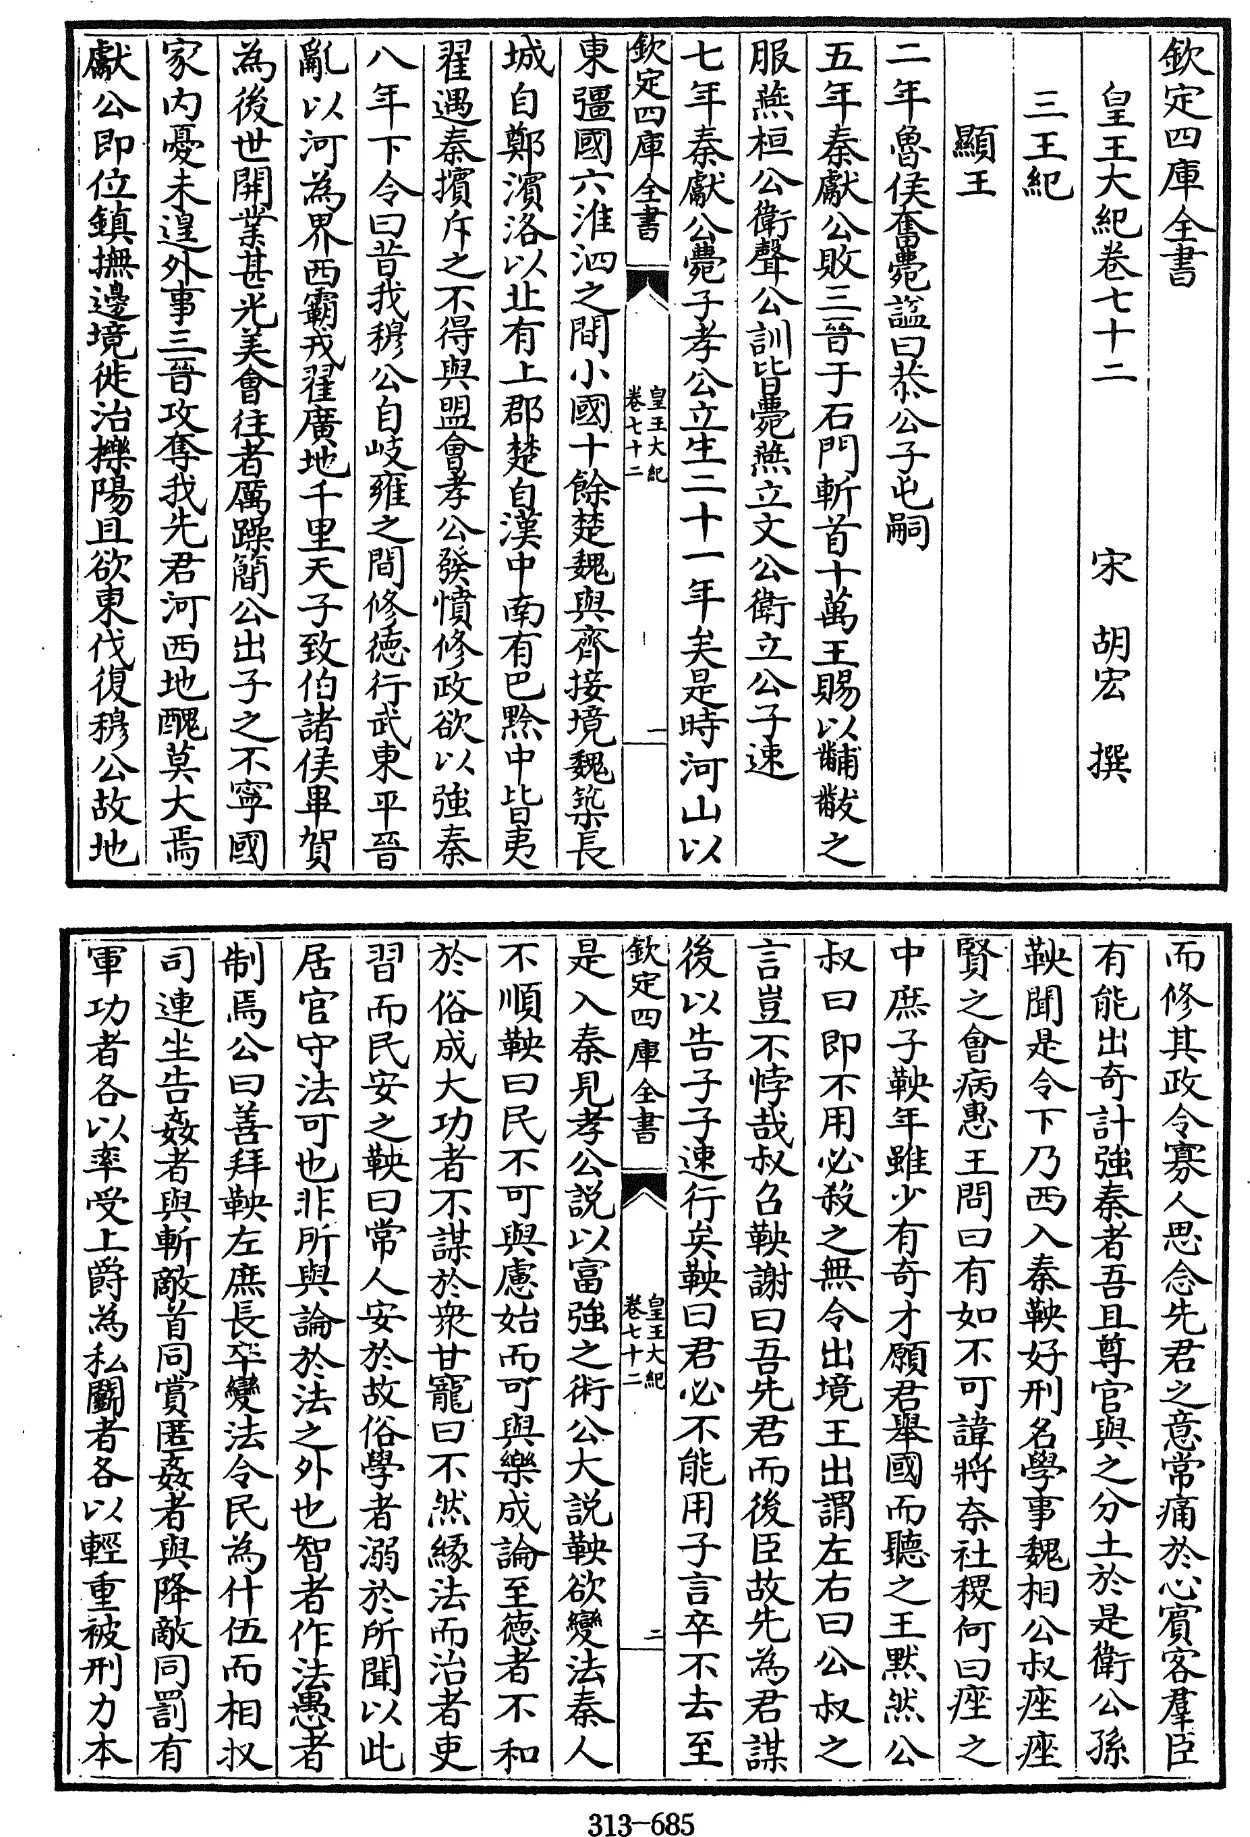 欽定四庫全書
皇王大紀卷七十二
宋 胡宏 撰
三王紀
顯王
二年魯侯奮薨諡曰恭公子屯嗣
五年秦獻公敗三晉于石門斬首十萬王賜以黼黻之
服燕桓公衛聲公訓皆薨燕立文公衛立公子速
七年秦獻公薨子孝公立生二十一年矣是時河山以
欽定四庫全書
皇王大紀
卷七十二
一
東彊國六淮泗之間小國十餘楚魏與齊接境魏築長
城自鄭濱洛以北有上郡楚自漢中南有巴黔中皆夷
翟遇秦擯斥之不得與盟會孝公發憤修政欲以強秦
八年下令曰昔我穆公自岐雍之間修德行武東平晉
亂以河為界西霸戎翟廣地千里天子致伯諸侯畢賀
為後世開業甚光美會往者厲躁簡公出子之不寧國
家內憂未遑外事三晉攻奪我先君河西地醜莫大焉
獻公即位鎮撫邊境徙治櫟陽且欲東伐復穆公故地
而修其政令寡人思念先君之意常痛於心賓客羣臣
有能出奇計強秦者吾且尊官與之分土於是衛公孫
鞅聞是令下乃西入秦鞅好刑名學事魏相公叔座座
賢之會病惠王問曰有如不可諱將奈社稷何曰座之
中庶子鞅年雖少有奇才願君舉國而聽之王默然公
叔曰即不用必殺之無令出境王出謂左右曰公叔之
言豈不悖哉叔召鞅謝曰吾先君而後臣故先為君謀
後以告子子速行矣鞅曰君必不能用子言卒不去至
欽定四庫全書
皇王大紀
卷七十二
二
是入秦見孝公説以富強之術公大説鞅欲變法秦人
不順鞅曰民不可與慮始而可與樂成論至德者不和
於俗成大功者不謀於衆甘寵曰不然緣法而治者吏
習而民安之鞅曰常人安於故俗學者溺於所聞以此
居官守法可也非所與論於法之外也智者作法愚者
制焉公曰善拜鞅左庶長卒變法令民為什伍而相収
司連坐告姦者與斬敵首同賞匿姦者與降敵同罰有
軍功者各以率受上爵為私鬭者各以輕重被刑力本
313-685